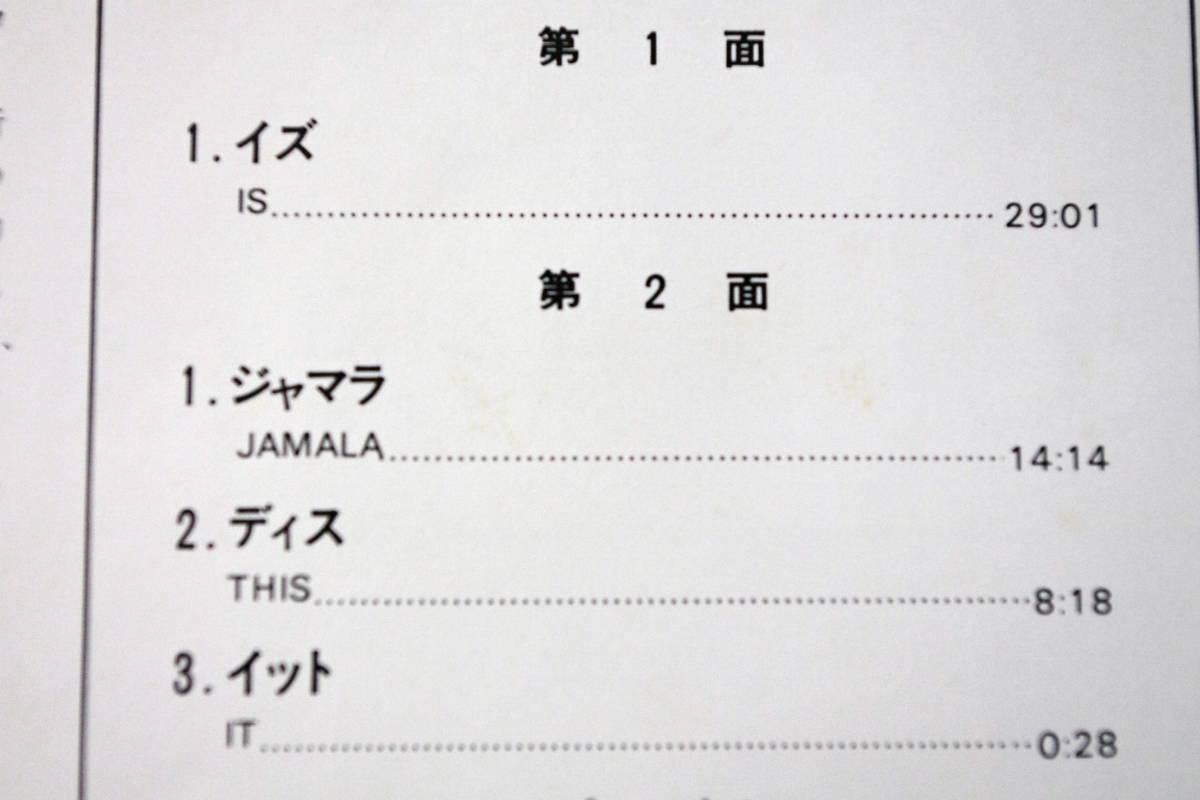 第 1 面
1. イズ
IS 29:01
第 2 面
1. ジャマラ
JAMALA 14:14
2. ディス
THIS 8:18
3. イット
IT 0:28